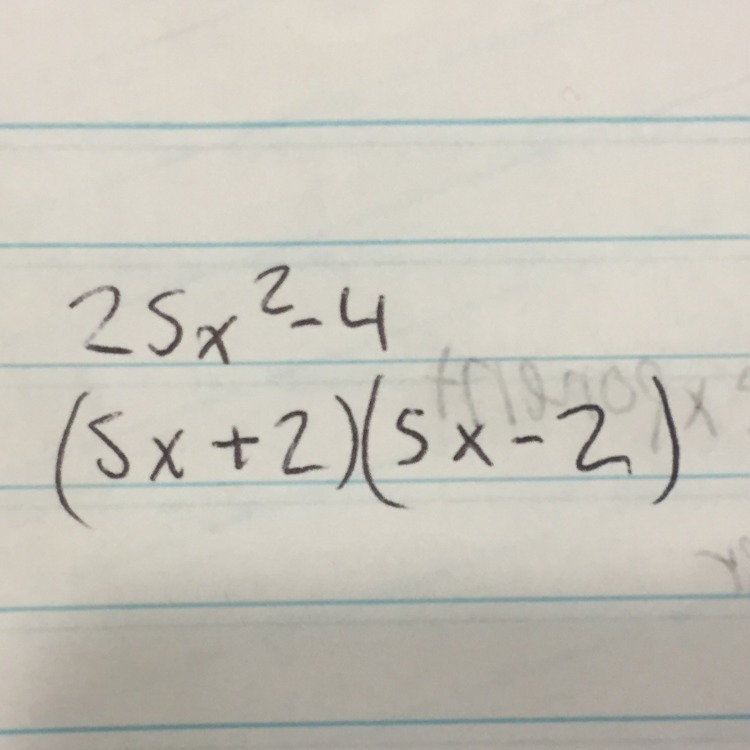 25x²-4
(5x+2)(5x-2)